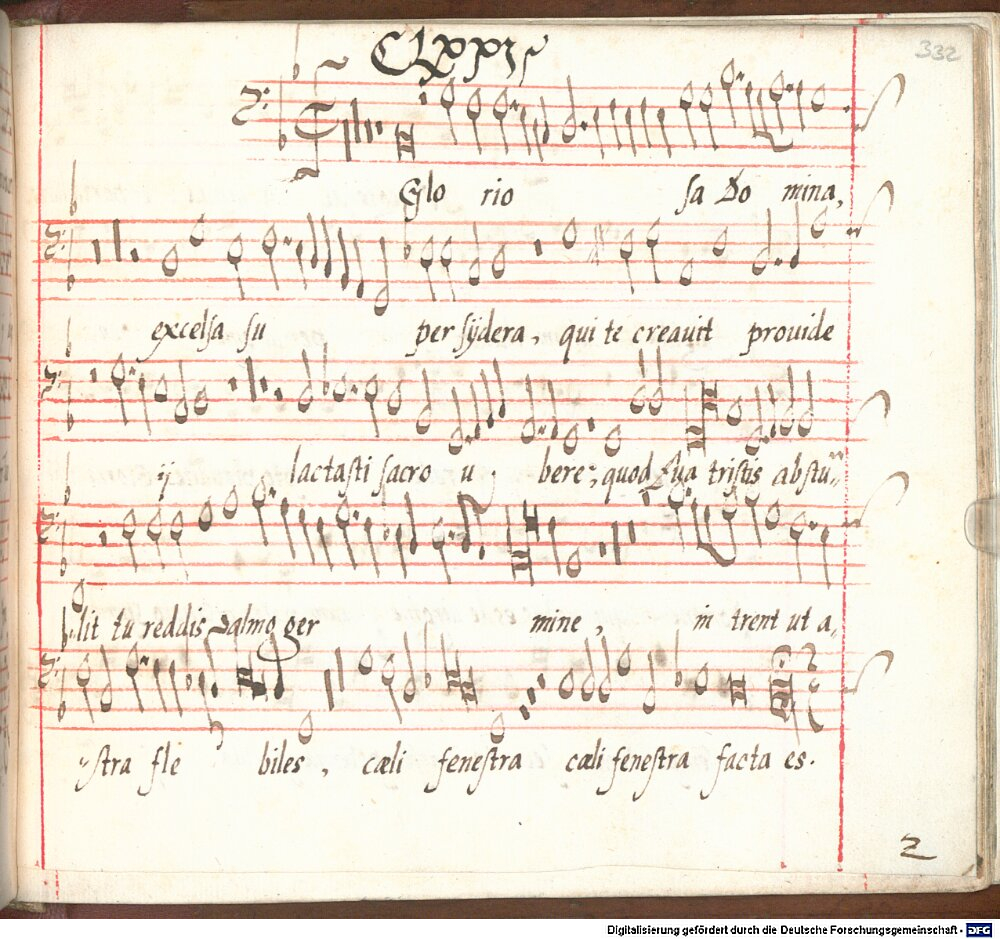 332
Glo rio sa Do mina,
excelsa su per sÿdera, qui te creavit provide
ij lactasti sacro u bere, quod Eva tristis abstu„
„lit tu reddis almo ger mine, in trent ut a„
„stra fle biles, cæli fenestra cæli fenestra facta es.
2
Digitalisierung gefördert durch die Deutsche Forschungsgemeinschaft - DFG